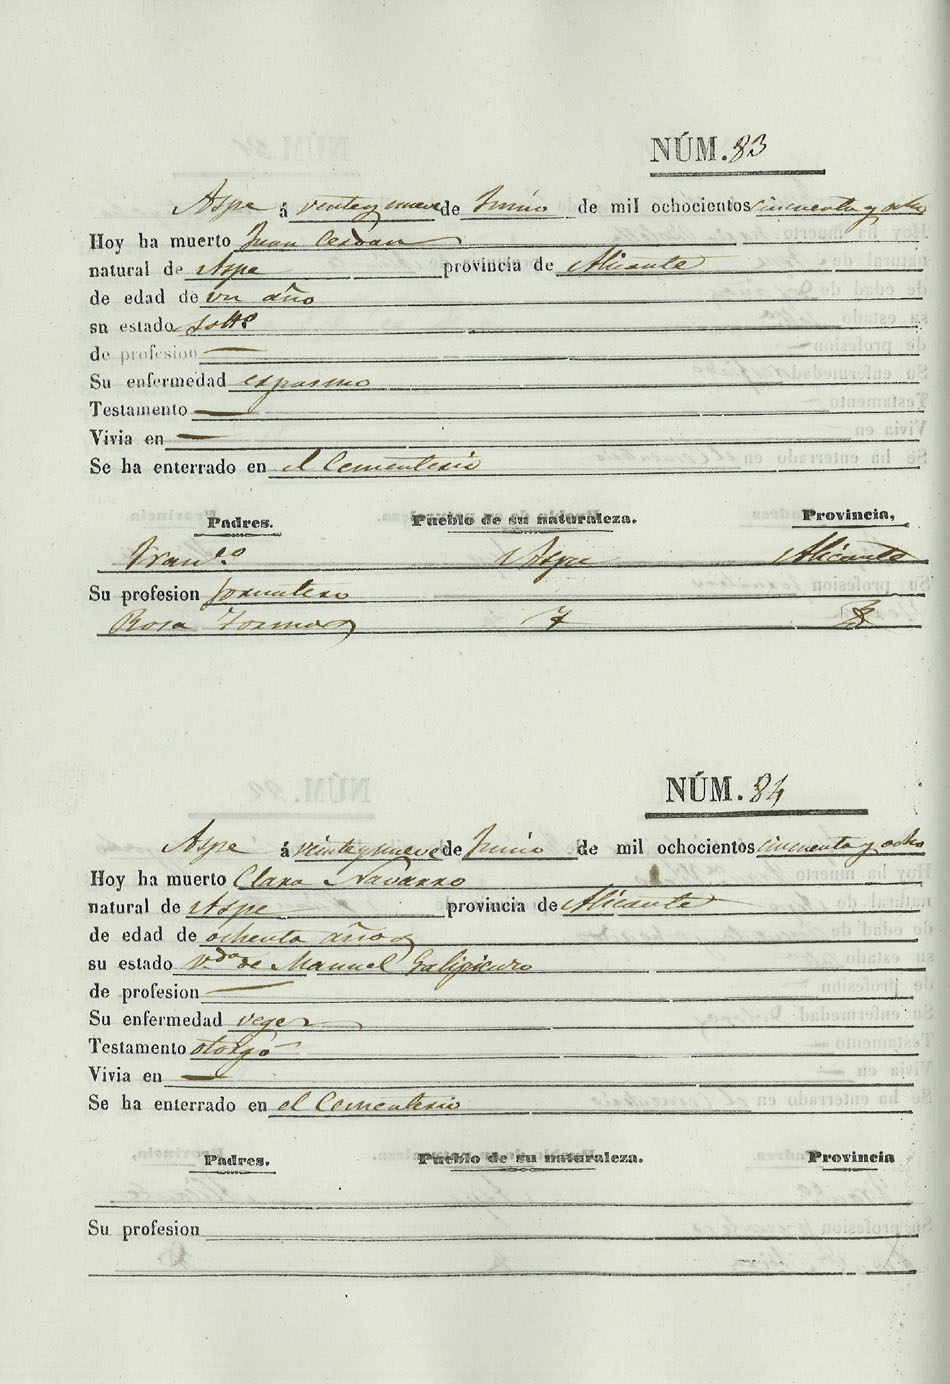 NÚM. 83
Aspe á veinte y nueve de Junio de mil ochocientos cincuenta y ocho
Hoy ha muerto Juan Cerdan
natural de Aspe provincia de Alicante
de edad de un año
su estado Soltº
de profesion —
Su enfermedad espasmo
Testamento —
Vivia en —
Se ha enterrado en el Cementerio
Padres. Pueblo de su naturaleza. Provincia,
Franco Aspe Alicante
Su profesion Jornalero
Rosa
NÚM. 84
Aspe á veinte y nueve de Junio de mil ochocientos cincuenta y ocho
Hoy ha muerto Clara Navarro
natural de Aspe provincia de Alicante
de edad de ochenta años
su estado vda de Manuel Galipienso
de profesion —
Su enfermedad vegez
Testamento otorgó
Vivia en —
Se ha enterrado en el Cementerio
Padres. Pueblo de su naturaleza. Provincia
Su profesion